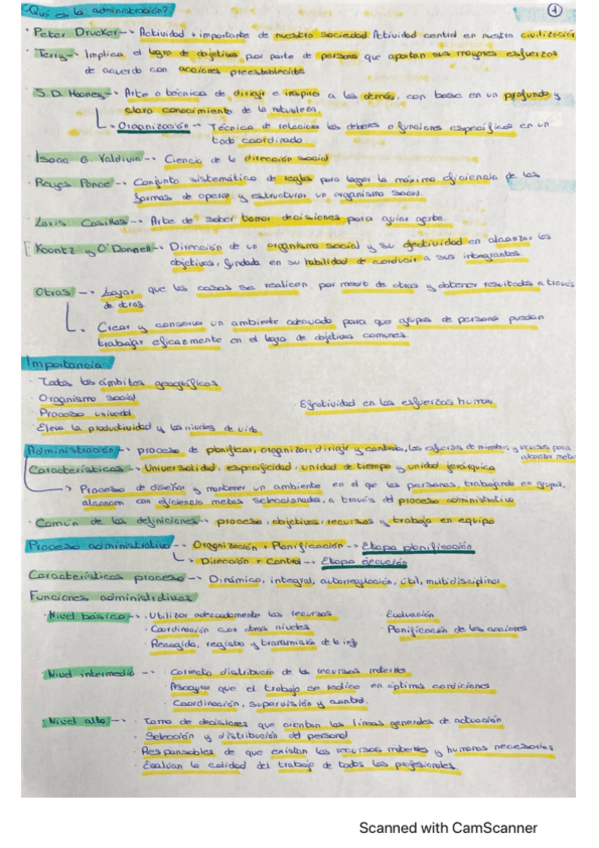 ¿Qué es la administración? 1
· Peter Drucker --> Actividad + importante de nuestra sociedad Actividad central en nuestra civilización
· Terry --> Implica el logro de objetivos por parte de personas que aportan sus mayores esfuerzos
de acuerdo con acciones preestablecidas
· S.D. Mooney --> Arte o técnica de dirigir e inspirar a los demás, con base en un profundo y
claro conocimiento de la naturaleza.
Organización --> Técnica de relacionar los deberes o funciones específicas en un
todo coordinado
Isaac G Valdivia --> Ciencia de la dirección social
· Reyes Ponce --> Conjunto sistemático de reglas para lograr la máxima eficiencia de las
formas de operar y estructurar un organismo social.
· Loris Casillas --> Arte de saber tomar decisiones para guiar gente.
Koontz y O'Donnell --> Dirección de un organismo social y su efectividad en alcanzar los
objetivos, fundada en su habilidad de conducir a sus integrantes
Otras --> Lograr que las cosas se realicen, por medio de otras y obtener resultados a través
de otras
Crear y conservar un ambiente adecuado para que grupos de personas puedan
trabajar eficazmente en el logro de objetivos comunes.
Importancia
· Todos los ámbitos geográficos
· Organismo social · Efectividad en los esfuerzos humanos
· Proceso universal
· Eleva la productividad y los niveles de vida
Administración --> proceso de planificar, organizar, dirigir y controlar, los esfuerzos de miembros y recursos para
alcanzar metas
Características --> Universalidad, especificidad, unidad de tiempo y unidad jerárquica
--> Proceso de diseñar y mantener un ambiente en el que las personas, trabajando en grupos,
alcancen con eficiencia metas seleccionadas, a través del proceso administrativo
· Común de las definiciones --> proceso, objetivos, recursos y trabajo en equipo
Proceso administrativo --> Organización + Planificación --> Etapa planificación
Dirección + Control --> Etapa ejecución
Características proceso --> Dinámico, integral, autorregulación, útil, multidisciplinar
Funciones administrativas
· Nivel básico --> · Utilizar adecuadamente los recursos · Evaluación
· Coordinación con otros niveles · Planificación de las acciones
· Recogida, registro y transmisión de la inf
· Nivel intermedio --> · Correcta distribución de los recursos materiales
Asegurar que el trabajo se realice en óptimas condiciones
· Coordinación, supervisión y control.
· Nivel alto --> · Toma de decisiones que orientan las líneas generales de actuación
· Selección y distribución del personal
· Responsables de que existan los recursos materiales y humanos necesarios
· Evalúan la calidad del trabajo de todos los profesionales.
Scanned with CamScanner